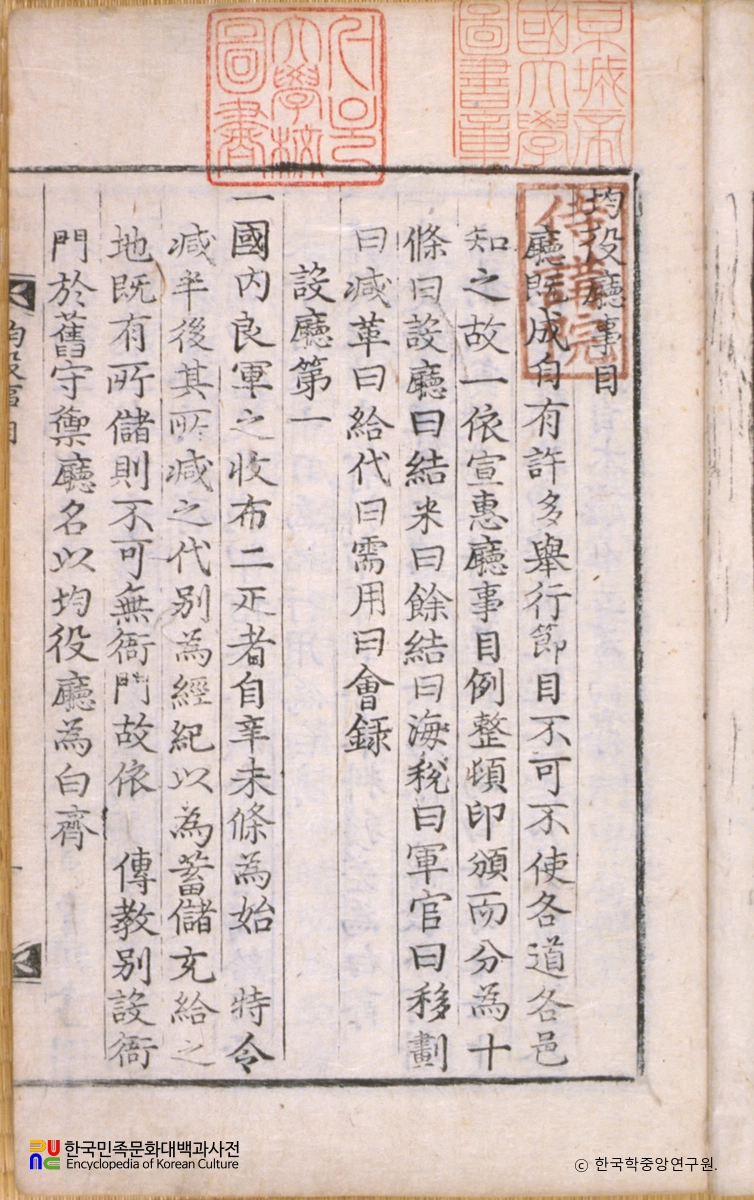 均役廳事目
廳既成向有許多舉行節目不可不使各道各邑
知之故一依宣惠廳事目例整頓印頒而分為十
條曰設廳曰結米曰餘結曰海稅曰軍官曰移劃
曰減革曰給代曰需用曰會錄
設廳第一
一國內良軍之收布二疋者自辛未條為始 特令
減半後其所減之代別為經紀以為蓄儲充給之
地既有所儲則不可無衙門故依 傳敎別設衙
門於舊守禦廳名以均役廳為白齊
京城帝國大學圖書章
서울大學校圖書
侍講院
한국민족문화대백과사전
Encyclopedia of Korean Culture
© 한국학중앙연구원.